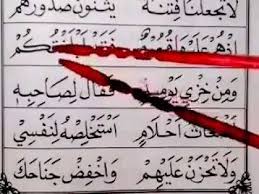 لَا تَجْعَلْنَا فِتْنَةً يَثْنُونَ صُدُورَهُمْ
إِذْ هُمْ عَلَيْهَا
وَمِنْ خِزْيِ يَوْمِئِذٍ فَقَالَ لِصَاحِبِهِ
أَضْغَاثُ أَحْلَامٍ أَسْتَخْلِصْهُ لِنَفْسِي
وَلَا تَحْزَنْ عَلَيْهِمْ وَاخْفِضْ جَنَاحَكَ